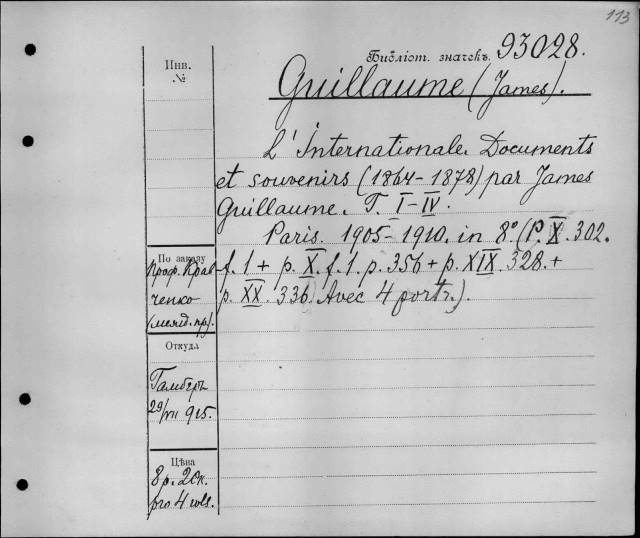 113
Инв.
№
Библіот. значекъ 93028.
Guillaume (James).
L'Internationale. Documents
et souvenirs (1864-1878) par James
Guillaume. T. I-IV.
Paris. 1905-1910. in 8° (P. X. 302.
f. 1 + p. X. f. 1. p. 356 + p. XIX. 328. +
p. XX. 336. Avec 4 portr.).
По заказу
проф. Крав-
ченко
(межд. пр).
Откуда
Гамберъ
29/VII 915.
Цѣна
8 р. 20к.
pro 4 vols.